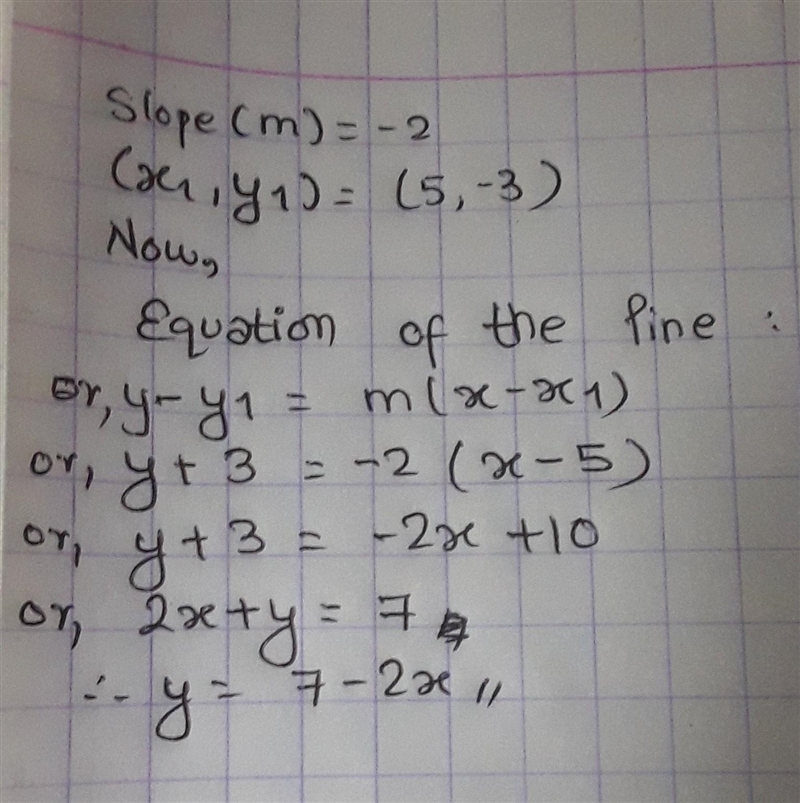 Slope(m) = -2
(x1, y1) = (5, -3)
Now,
Equation of the line :
or, y - y1 = m(x - x1)
or, y + 3 = -2 (x - 5)
or, y + 3 = -2x + 10
or, 2x + y = 7
∴ y = 7 - 2x "